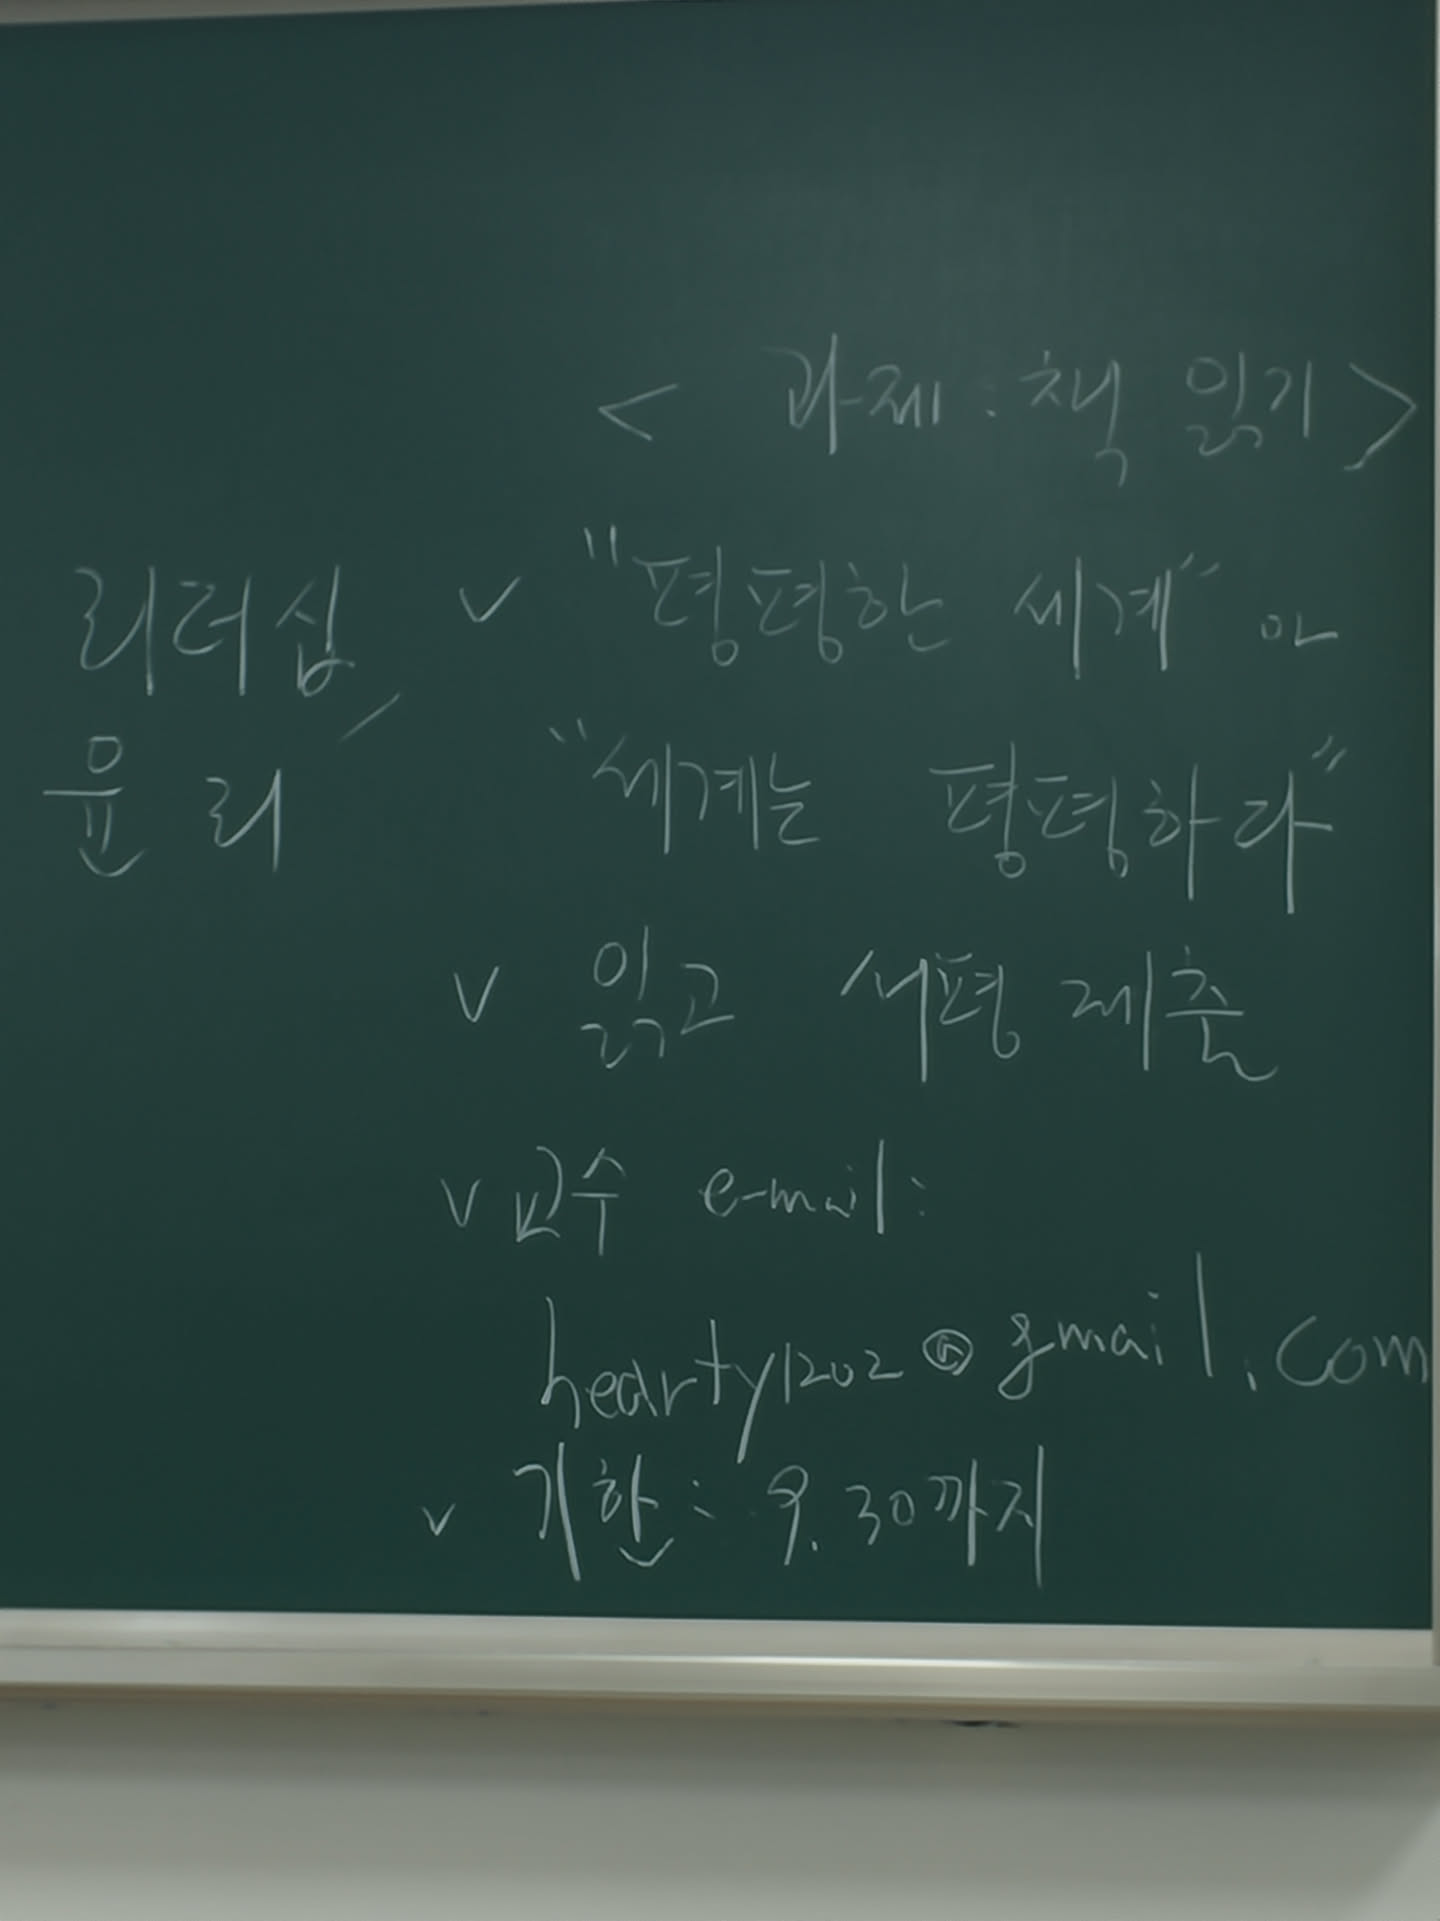 < 과제 : 책 읽기 >
리더십,
윤리
v "평평한 세계" 와
"세계는 평평하다"
v 읽고 서평 제출
v 교수 e-mail:
hearty1202@gmail.com
v 기한: 9.30까지